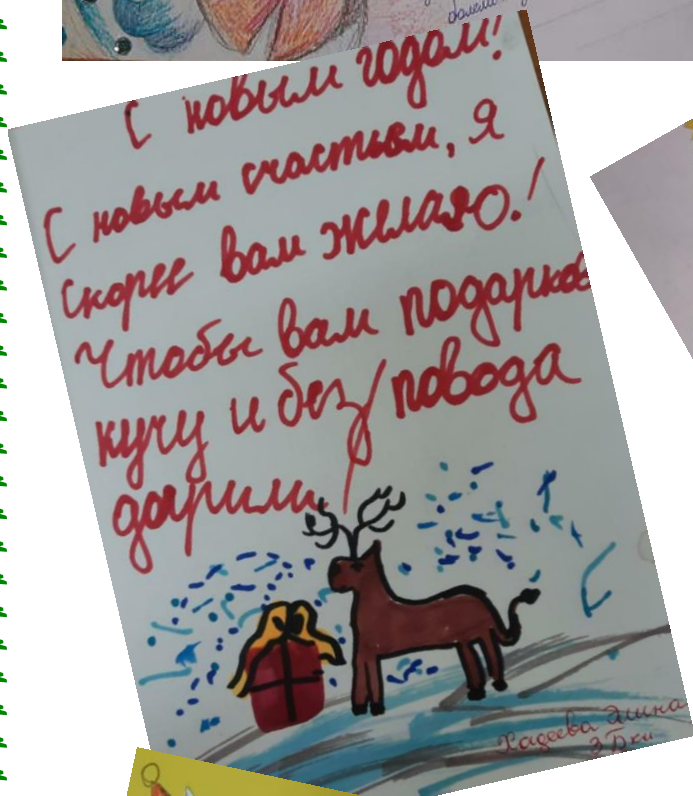 С новым годом!
С новым счастьем, я
скорее вам желаю!
Чтобы вам подарков
кучу и без повода
дарили!
Хадеева Элина
3 Б кл